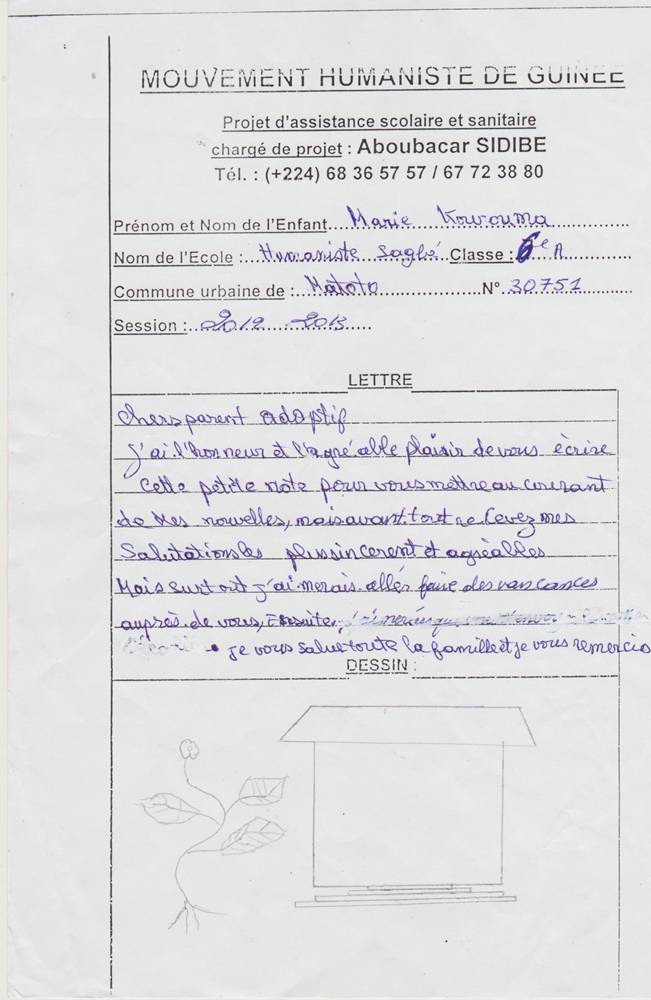 MOUVEMENT HUMANISTE DE GUINEE
Projet d'assistance scolaire et sanitaire
chargé de projet : Aboubacar SIDIBE
Tél. : (+224) 68 36 57 57 / 67 72 38 80
Prénom et Nom de l'Enfant.... Marie Kovouma
Nom de l'Ecole : Humaniste Sagbé Classe : 6e A
Commune urbaine de : Matoto N° 30751
Session : 2012 2013
LETTRE
chers parent adoptif
J'ai l'honneur et l'agréable plaisir de vous écrire
Cette petite note pour vous mettre au courant
de mes nouvelles, mais avant tout recevez mes
Salutations les plus sincerent et agréables
Mais surtout j'aimerais aller faire des vancances
auprès de vous, Ensuite,
je vous salue toute la famille et je vous remercie
DESSIN :